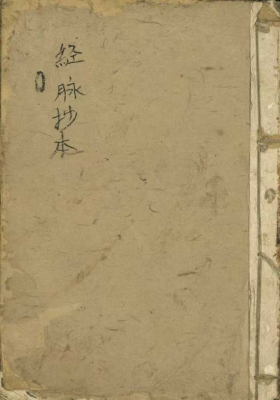 経脉抄本